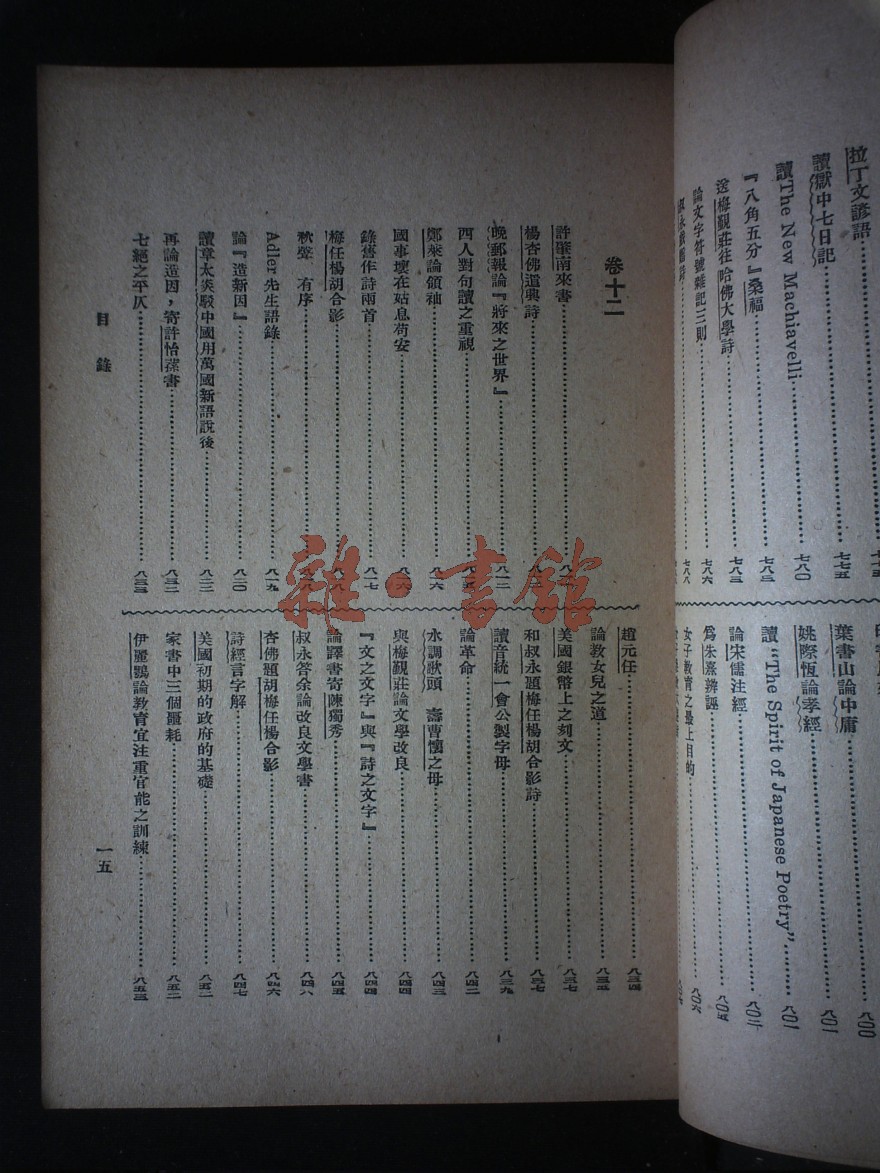 拉丁文諺語⋯⋯七七五
讀獄中七日記⋯⋯七七五
讀The New Machiavelli⋯⋯七八〇
『八角五分』桑福⋯⋯七八三
送梅覲莊往哈佛大學詩⋯⋯七八三
論文字符號雜記三則⋯⋯七八六
葉書山論中庸⋯⋯八〇〇
姚際恆論孝經⋯⋯八〇一
讀“The Spirit of Japanese Poetry”⋯⋯八〇一
論宋儒注經⋯⋯八〇二
爲朱熹辨誣⋯⋯八〇五
女子教育之最上目的⋯⋯八〇六
卷十二
許肇南來書
楊杏佛遣興詩
晚郵報論『將來之世界』⋯⋯八一二
西人對句讀之重視
鄭萊論領袖⋯⋯八一六
國事壞在姑息苟安⋯⋯八一六
錄舊作詩兩首⋯⋯八一七
梅任楊胡合影
秋聲 有序
Adler 先生語錄⋯⋯八一九
論『造新因』⋯⋯八二〇
讀章太炎駁中國用萬國新語說後⋯⋯八二二
再論造因，寄許怡蓀書⋯⋯八三二
七絕之平仄⋯⋯八三三
趙元任⋯⋯八三四
論教女兒之道⋯⋯八三五
美國銀幣上之刻文⋯⋯八三七
和叔永題梅任楊胡合影詩⋯⋯八三七
讀音統一會公製字母⋯⋯八三九
論革命⋯⋯八四二
水調歌頭 壽曹懷之母⋯⋯八四三
與梅覲莊論文學改良⋯⋯八四四
『文之文字』與『詩之文字』⋯⋯八四四
論譯書寄陳獨秀⋯⋯八四五
叔永答余論改良文學書⋯⋯八四六
杏佛題胡梅任楊合影⋯⋯八四六
詩經言字解⋯⋯八四七
美國初期的政府的基礎⋯⋯八五一
家書中三個噩耗⋯⋯八五二
伊麗鸚論教育宜注重官能之訓練⋯⋯八五三
目錄
一五
雜·書館